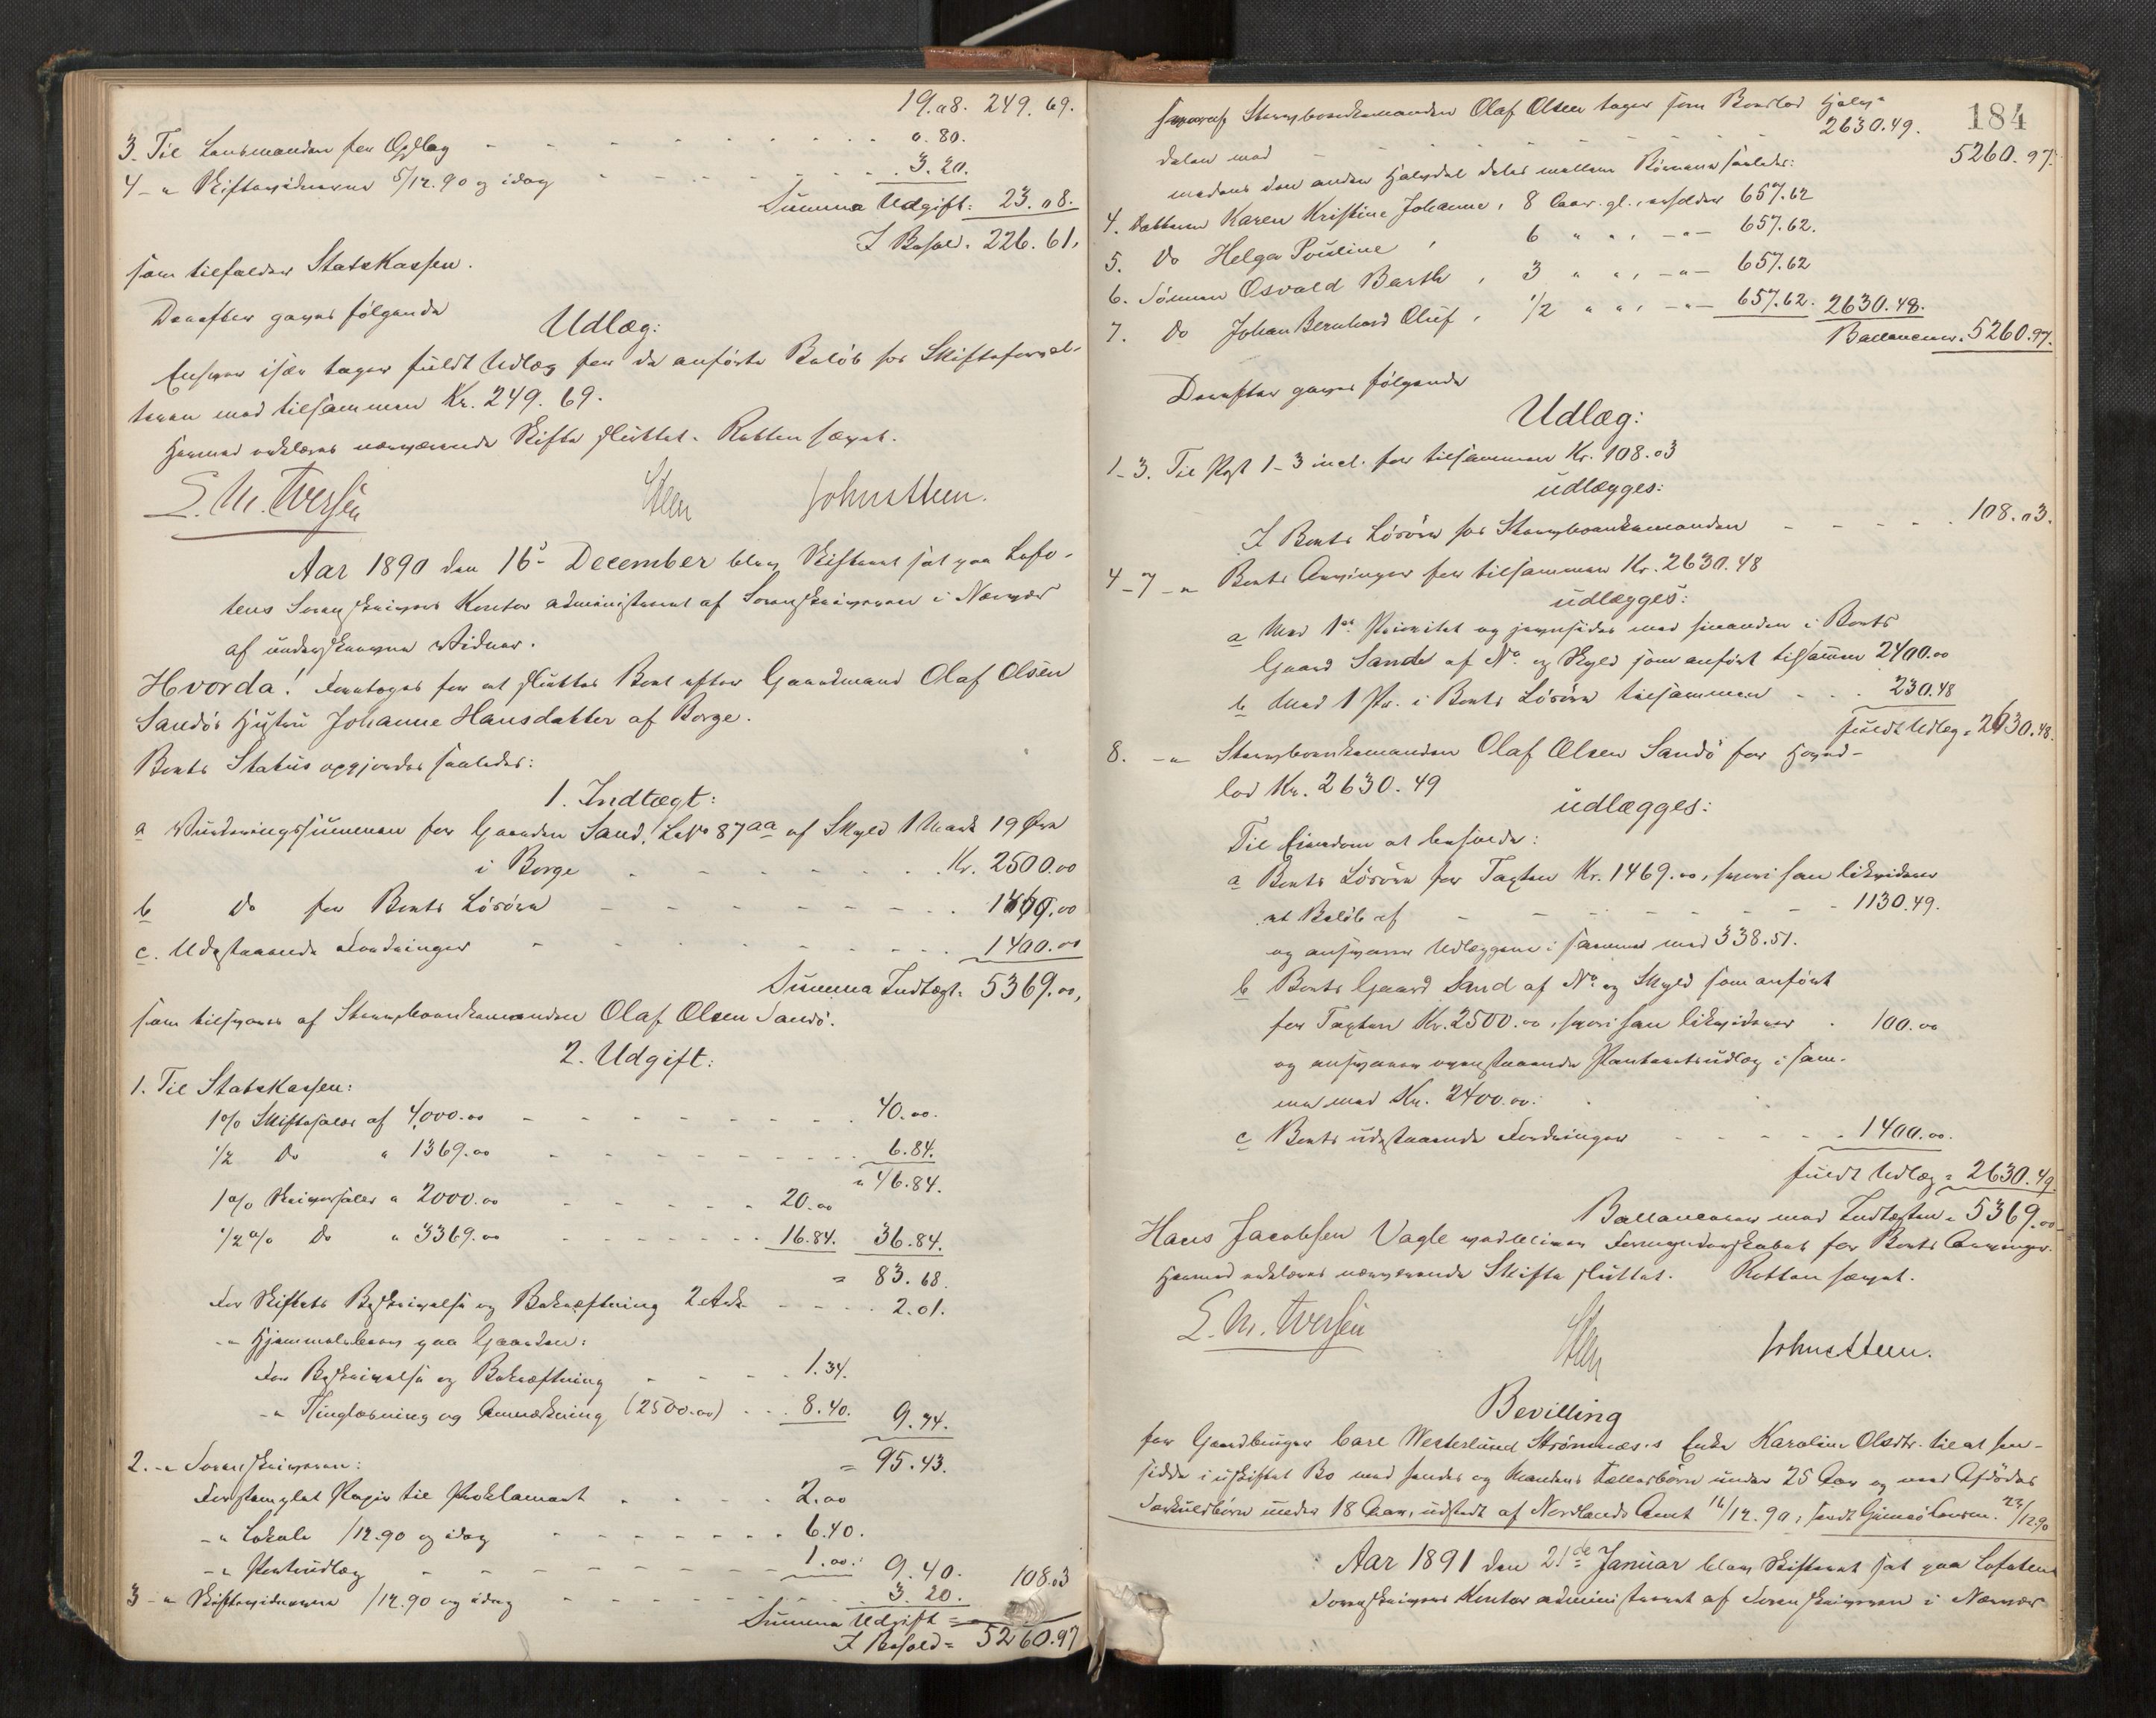 19.08. 249.69.
3. Til Lensmanden for Opslag - - - 0.80.
4 -"- Skiftevidnerne 5/12.90 og idag - - - 3.20.
Summa Udgift: 23.08.
I Behold. 226.61.
som tilfalder Statskassen.
Derefter gaves følgende
Udlæg:
Enhver især tager fuldt Udlæg for de anførte Beløb hos Skifteforval-
teren med tilsammen Kr. 249.69.
Hermed erklæres nærværende Skifte sluttet. Retten hævet.
E. M. Iversen Steen John Steen.
Aar 1890 den 16de December blev Skifteret sat paa Lofo-
tens Sorenskrivers Kontor administreret af Sorenskriveren i Nærvær
af underskrevne Vidner.
Hvorda! Foretoges for at sluttes Boet efter Gaardmand Olaf Olsen
Sandös Hustru Johanne Hansdatter af Borge.
Boets Status opgjordes saaledes:
1. Indtægt:
a Vurderingssummen for Gaarden Sand, LNo 87aa af Skyld 1 Mark 19 Øre
i Borge - - - Kr. 2500.00
b Do for Boets Lösöre - - - 1469.00
c. Udestaaende Fordringer - - - 1400.00
Summa Indtægt = 5369.00,
som tilsvares af Stervboenkemanden Olaf Olsen Sandö.
2. Udgift:
1. Til Statskassen:
1% Skiftesalær af 4,000.00 - - - 40.00.
1/2 Do " 1369.00 - - - 6.84.
" 46.84.
1% Skriversalær " 2000.00 - - - 20.00
1/2% Do " 3369.00 - - - 16.84. 36.84.
= 83.68.
For Skiftets Beskrivelse og Bekræftning 2 Ark - - - 2.01.
-"- Hjemmelsbrev paa Gaarden:
For Beskrivelse og Bekræftning - - - 1.34.
-"- Thinglæsning og Anmærkning (2500.00) - - 8.40. 9.74.
= 95.43.
2. -"- Sorenskriveren:
For stemplet Papir til Proklamaet - - - 2.00
-"- Lokale /12.90 og idag - - - 6.40.
-"- Portoudlæg - - - 1.00. 9.40. 108.03
3 -"- Skiftevidnerne /12.90 og idag - - - 3.20.
Summa Udgift =
I Behold = 5260.97
184
hvoraf Stervboenkemanden Olaf Olsen tager som Boeslod Halv-
delen med - - - 2630.49. 5260.97.
medens den anden Halvdel deles mellem Börnene saaledes:
4. Datteren Karen Kristine Johanne, 8 Aar gl., erholder 657.62
5. Do Helga Pouline, 6 " ", -"- 657.62.
6. Sönnen Osvald Barth, 3 " ", -"- 657.62
7. Do Johan Bernhard Oluf, 1/2 " ", -"- 657.62. 2630.48.
Ballancerer. 5260.97.
Derefter gaves følgende
Udlæg:
1-3. Til Post 1-3 incl. for tilsammen Kr. 108.03
udlægges:
I Boets Lösöre hos Stervboenkemanden - - - 108.03.
4-7 -"- Boets Arvinger for tilsammen Kr. 2630.48
udlægges:
a Med 1ste Prioritet og jevnsides med hinanden i Boets
Gaard Sande af No. og Skyld som anfört tilsammen 2400.00
b Med 1 Pr. i Boets Lösöre tilsammen - - - 230.48
fuldt Udlæg = 2630.48.
8. -"- Stervboenkemanden Olaf Olsen Sandö for Hoved-
lod Kr. 2630.49
udlægges:
Til Eiendom at beholde:
a Boets Lösöre for Taxten Kr. 1469.00, hvori han likviderer
et Beløb af - - - 1130.49.
og ansvarer Udlæggene i samme med 338.51.
b Boets Gaard Sand af No. og Skyld som anfört
for Taxten Kr. 2500.00, hvori han likviderer - 100.00
og ansvarer ovenstaaende Panteretsudlæg i sam-
me med Kr. 2400.00.
c Boets udestaaende Fordringer - - - 1400.00.
fuldt Udlæg = 2630.49.
Ballancerer med Indtægten = 5369.00
Hans Jacobsen Vagle vedbliver Formynderskabet for Boets Arvinger.
Hermed erklæres nærværende Skifte sluttet. Retten hævet.
E. M. Iversen Steen John Steen.
Bevilling
for Gaardbruger Carl Westerlund Strömnæs's Enke Karoline Olsdtr. til at hen-
sidde i uskiftet Bo med hendes og Mandens Fællesbörn under 25 Aar og med Afdödes
Særkuldbörn under 18 Aar, udstedt af Nordlands Amt 16/12.90, sendt Gimsö Lensm. 23/12.90
Aar 1891 den 21de Januar blev Skifteret sat paa Lofotens
Sorenskrivers Kontor administreret af Sorenskriveren i Nærvær